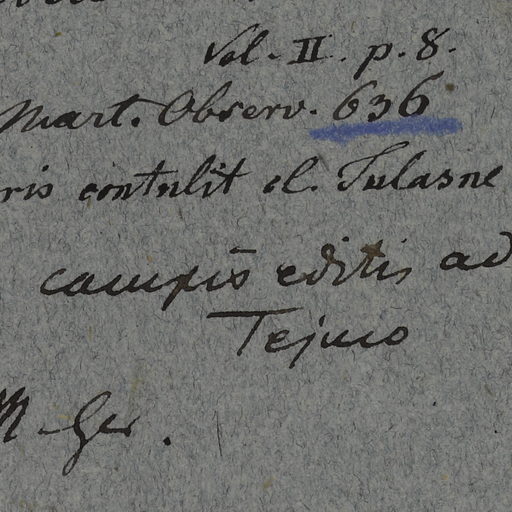 Vol. II. p. 8.
Mart. Observ. 636
ris contulit cl. Tulasne
campis editis ad
Tejuco
M. Ger.